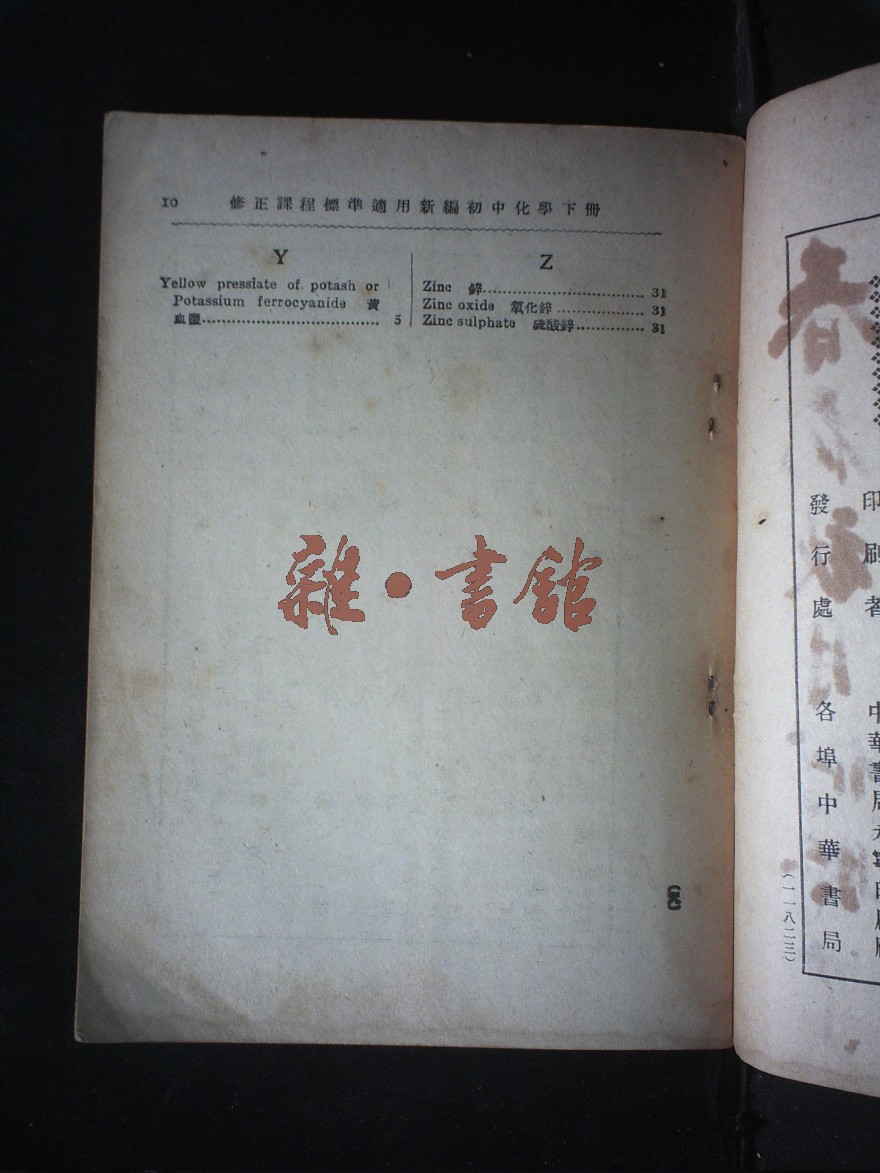 10 修正課程標準適用新編初中化學下冊
Y
Yellow pressiate of potash or
Potassium ferrocyanide 黃
血鹽.................................. 5
Z
Zinc 鋅............................... 31
Zinc oxide 氧化鋅 ................ 31
Zinc sulphate 硫酸鋅............. 31
雜・書館
印刷者
發行處 各埠中華書局
(一一八二三)